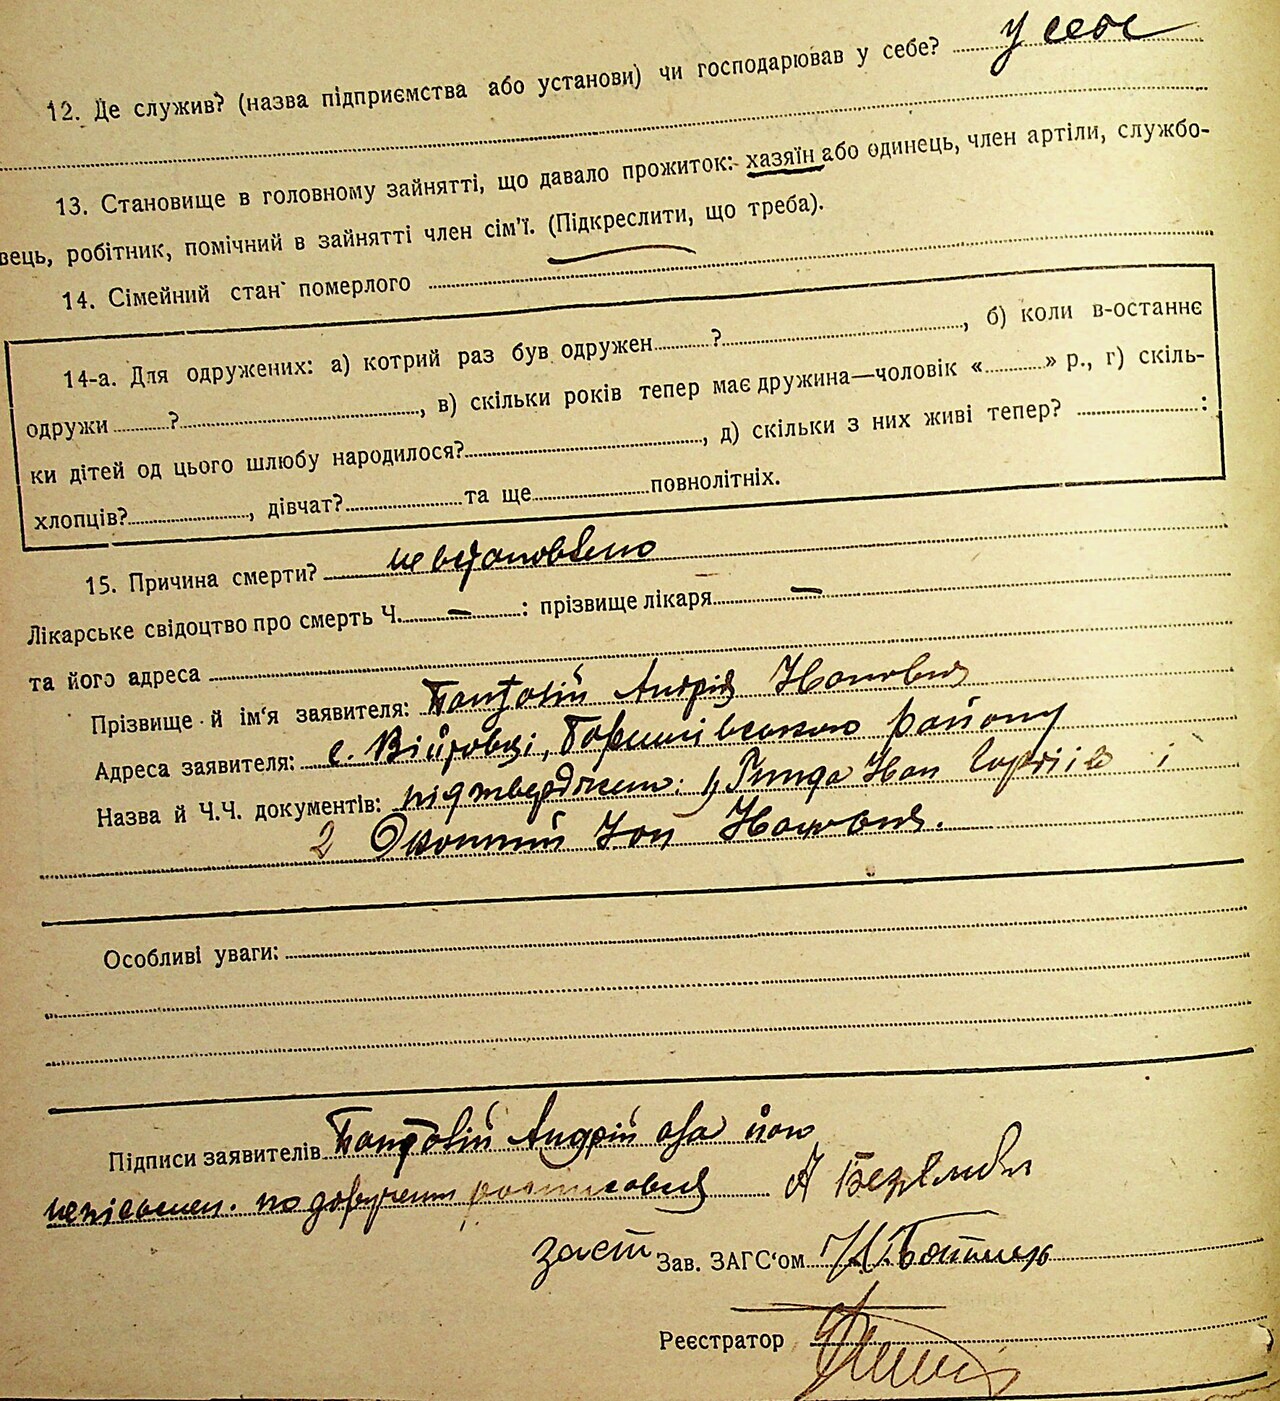 у себе
12. Де служив? (назва підприємства або установи) чи господарював у себе?
13. Становище в головному зайнятті, що давало прожиток:- хазяїн або одинець, член артіли, службо-
вець, робітник, помічний в зайнятті член сім'ї. (Підкреслити, що треба).
14. Сімейний стан померлого
14-а. Для одружених: а) котрий раз був одружен ? , б) коли в-останнє
одружи ? , в) скільки років тепер має дружина—чоловік « » р., г) скіль-
ки дітей од цього шлюбу народилося? , д) скільки з них живі тепер? :
хлопців? , дівчат? та ще повнолітніх.
15. Причина смерти? не встановлено
Лікарське свідоцтво про смерть Ч. — : прізвище лікаря —
та його адреса
Прізвище й ім'я заявителя: Андрій
Адреса заявителя: с. Війтовці, району
Назва й Ч.Ч. документів: Іван і
2 Іван
Особливі уваги:
Підписи заявителів Андрій а за його
неписьмен. по доручен. росписовся А
заст Зав. ЗАГС'ом
Реєстратор